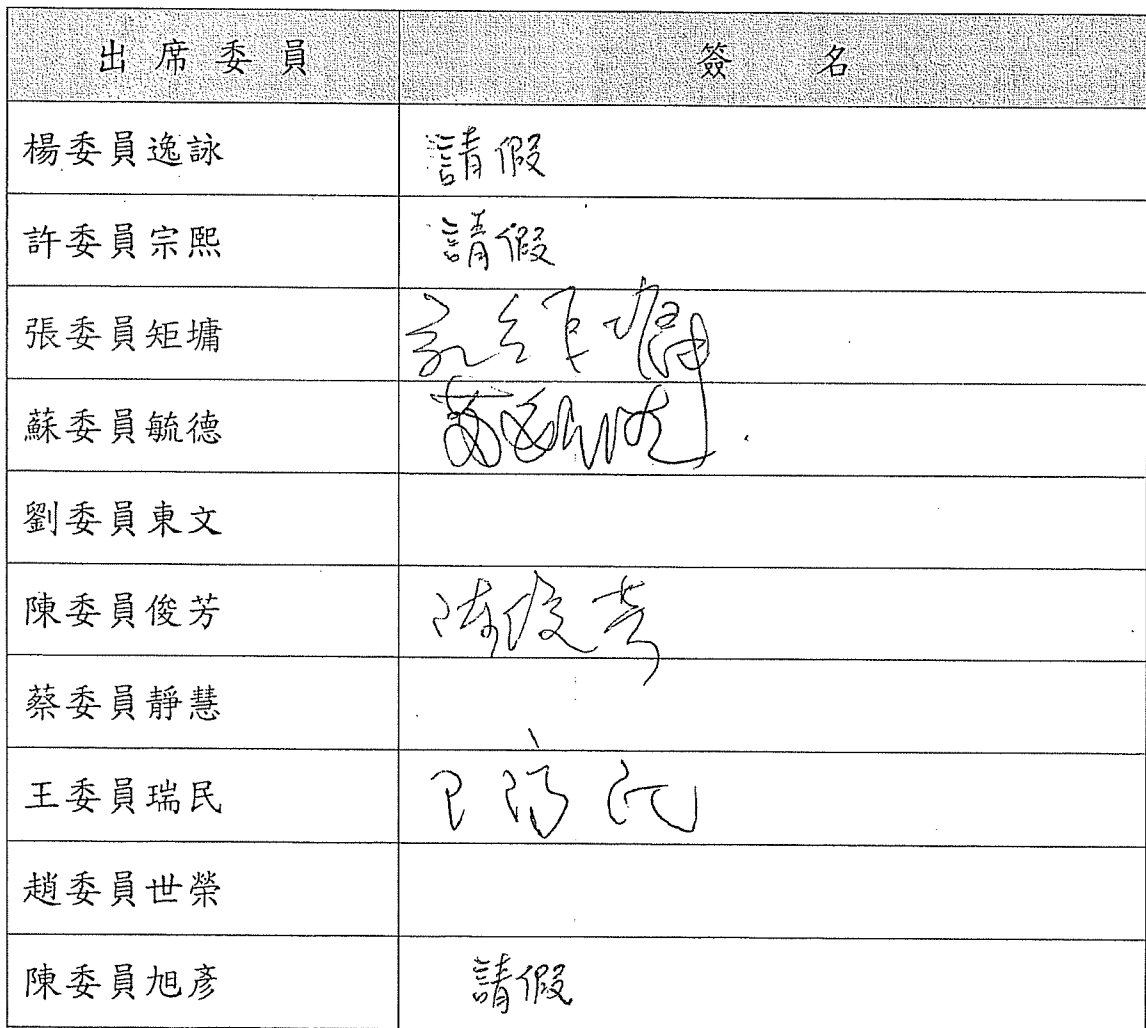 出席委員 簽名
楊委員逸詠 請假
許委員宗熙 請假
張委員矩墉
蘇委員毓德
劉委員東文
陳委員俊芳 陳俊芳
蔡委員靜慧
王委員瑞民
趙委員世榮
陳委員旭彥 請假